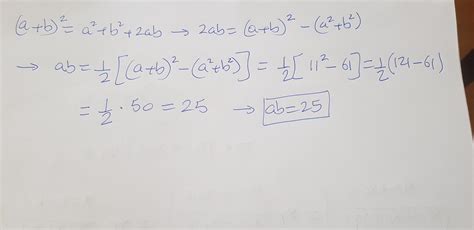 (a+b)² = a²+b²+2ab → 2ab = (a+b)² − (a²+b²)
→ ab = 1/2 [(a+b)² − (a²+b²)] = 1/2 [11² − 61] = 1/2 (121 − 61)
= 1/2 · 50 = 25 → ab = 25